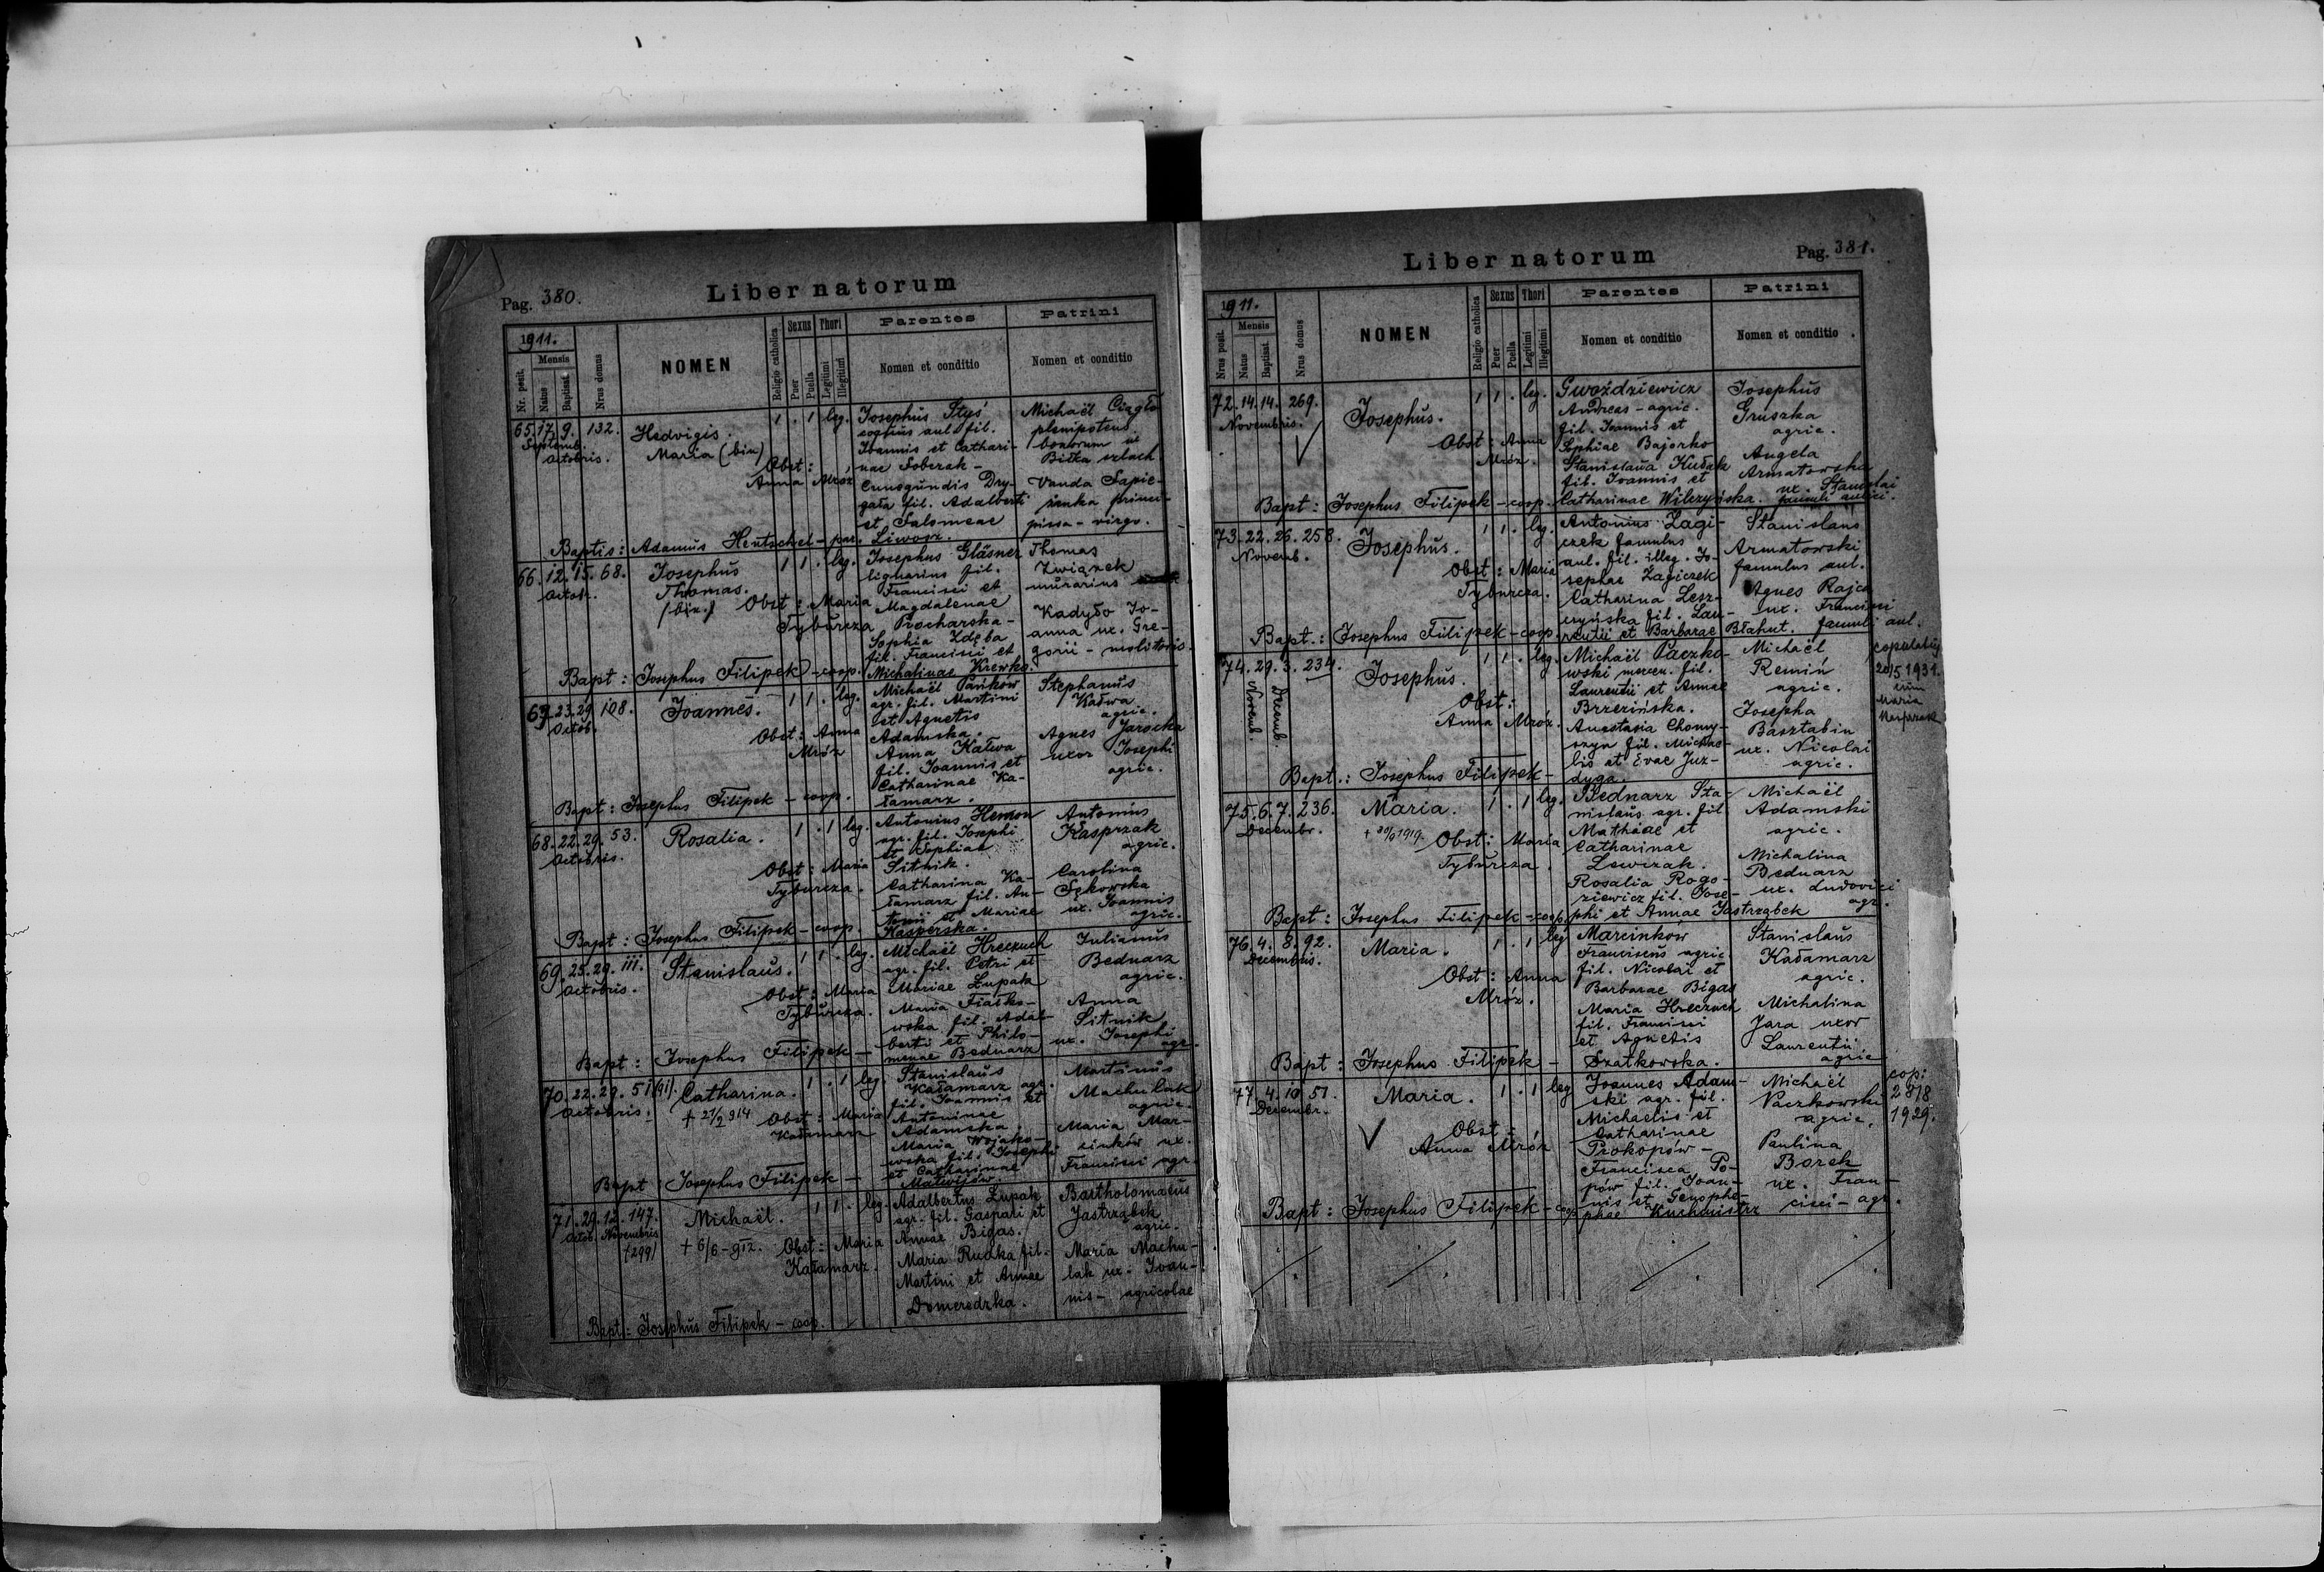 Pag. 380.
Liber natorum
1911.
Nr. posit.
Mensis
Natus
Baptisat.
Nrus domus
NOMEN
Religio catholica
Sexus
Puer
Puella
Thori
Legitimi
Illegitimi
Parentes
Nomen et conditio
Patrini
Nomen et conditio
65. 17. 9. 132.
Septemb.
Octobris.
Hedvigis.
Maria (bin)
1 . 1 leg.
Obst:
Anna Mróz
Josephus Styś
coctus aul. fil.
Joannis et Cathari-
nae Soberak -
Cunegundis Dry-
gała fil. Adalberti
et Salomeae
Liwosz.
Michaël Ciągło
plenipotens
bonorum in
Biłka szlach
Vanda Sapie-
żanka princi-
pissa - virgo.
Baptis: Adamus Hentschel - par.
66. 12. 15. 68.
Octob.
Josephus
Thomas.
(bin.)
1 1 . leg.
Obst: Maria
Tyburcza
Josephus Gläsner
lignarius fil.
Francisci et
Magdalenae
Pocharska -
Sophia Zdęba
fil. Francisci et
Michalinae Krewka.
Thomas
Związek
murarius
Kadyło Jo-
anna ux. Gre-
gorii - molitoris.
Bapt: Josephus Filipek - coop.
67. 23. 29. 108.
Octob.
Joannes.
1 1 . leg.
Obst: Anna
Mróz
Michaël Pańków
agr. fil. Martini
et Agnetis
Adamska.
Anna Kaława
fil. Joannis et
Catharinae Ka-
łamarz.
Stephanus
Kaława
agric.
Agnes Jarocka
uxor Josephi
agric.
Bapt: Josephus Filipek - coop.
68. 22. 29. 53.
Octobris.
Rosalia.
1 . 1 leg.
Obst: Maria
Tyburcza.
Antonius Hemon
agr. fil. Josephi
et Sophiae
Sitnik.
Catharina Ka-
łamarz fil. An-
tonii et Mariae
Kasperska.
Antonius
Kasprzak
agric.
Carolina
Sękowska
ux. Joannis
agric.
Bapt: Josephus Filipek - coop.
69. 25. 29. 111.
Octobris.
Stanislaus.
1 1 . leg.
Obst: Maria
Tyburcza.
Michaël Hreczuch
agr. fil. Petri et
Mariae Łupak
Maria Fiałko-
wska fil. Adal-
berti et Philo-
menae Bednarz
Julianus
Bednarz
agric.
Anna
Sitnik
ux. Josephi
agr.
Bapt: Josephus Filipek -
70. 22. 29. 51
Octobris.
Catharina.
+ 27/2 914
1 . 1 leg.
Obst: Maria
Kałamarz
Stanislaus
Kałamarz agr.
fil. Joannis et
Antoninae
Adamska.
Maria Wojako-
wska fil. Josephi
et Catharinae
Matwijów.
Martinus
Machulak
agric.
Maria Mar-
cinków ux.
Francisci agr.
Bapt: Josephus Filipek -
71. 29. 12. 147.
Octob. Novembris
(299)
Michaël.
+ 6/6 - 912.
1 1 . leg.
Obst: Maria
Kałamarz.
Adalbertus Łupak
agr. fil. Gaspari et
Annae Bigas.
Maria Rudka fil.
Martini et Annae
Domeredzka.
Bartholomaeus
Jastrząbek
agric.
Maria Machu-
lak ux. Joan-
nis - agricolae
Bapt: Josephus Filipek - coop.
Liber natorum
Pag. 381.
1911.
Nrus posit.
Mensis
Natus
Baptisat.
Nrus domus
NOMEN
Religio catholica
Sexus
Puer
Puella
Thori
Legitimi
Illegitimi
Parentes
Nomen et conditio
Patrini
Nomen et conditio
72. 14. 14. 269.
Novembris.
Josephus.
1 1 . leg.
Obst: Anna
Mróz.
Gwoździewicz
Andreas - agric.
fil. Joannis et
Sophiae Bajorko
Stanisława Kubak
fil. Joannis et
Catharinae Wilczyńska.
Josephus
Gruszka
agric.
Angela
Armatowska
ux. Stanislai
famuli aulici.
Bapt: Josephus Filipek - coop.
73. 22. 26. 258.
Novemb.
Josephus.
1 1 . leg.
Obst: Maria
Tyburcza.
Antonius Zagi-
czek famulus
aul. fil. illeg. Jo-
sephae Zagiczek
Catharina Lesz-
czyńska fil. Lau-
rentii et Barbarae Błahut.
Stanislaus
Armatowski
famulus aul.
Agnes Rajca
ux. Francisci
famuli aul.
Bapt.: Josephus Filipek - coop.
74. 29. 3. 234.
Novemb.
Decemb.
Josephus.
1 1 . leg.
Obst:
Anna Mróz.
Michaël Paczko-
wski mercen. fil.
Laurentii et Annae
Brzezińska.
Anastasia Chomy-
szyn fil. Michae-
lis et Evae Juz-
dyga.
Michaël
Remiń
agric.
Josepha
Basztabin
ux. Nicolai
agric.
copulatus
20/5 1931.
cum
Maria
Bapt.: Josephus Filipek -
75. 6. 7. 236.
Decembr.
Maria.
1 . 1 leg.
Obst: Maria
Tyburcza.
Bednarz Sta-
nislaus agr. fil.
Mathiae et
Catharinae
Lewczak.
Rosalia Rogo-
ziewicz fil. Jose-
phi et Annae Jastrząbek
Michaël
Adamski
agric.
Michalina
Bednarz
ux. Ludovici
agr.
Bapt: Josephus Filipek - coop.
76. 4. 8. 92.
Decembris.
Maria.
1 . 1 leg
Obst: Anna
Mróz.
Marcinkow
Franciscus agric
fil. Nicolai et
Barbarae Bigas
Maria Hreczuch
fil. Francisci
et Agnetis
Szatkowska.
Stanislaus
Kałamarz
agric.
Michalina
Jara uxor
Laurentii
agric
Bapt: Josephus Filipek -
77. 4. 10 51.
Decembr.
Maria.
1 . 1 leg
Obst:
Anna Mróz
Joannes Adam-
ski agr. fil.
Michaelis et
Catharinae
Prokopów -
Francisca Po-
pów fil. Joan-
nis et Genophe-
phae Kuchmistrz
Michaël
Paczkowski
agric.
Paulina
Borek
ux. Fran-
cisci - agr.
cop:
28/8
1929.
Bapt: Josephus Filipek - coop